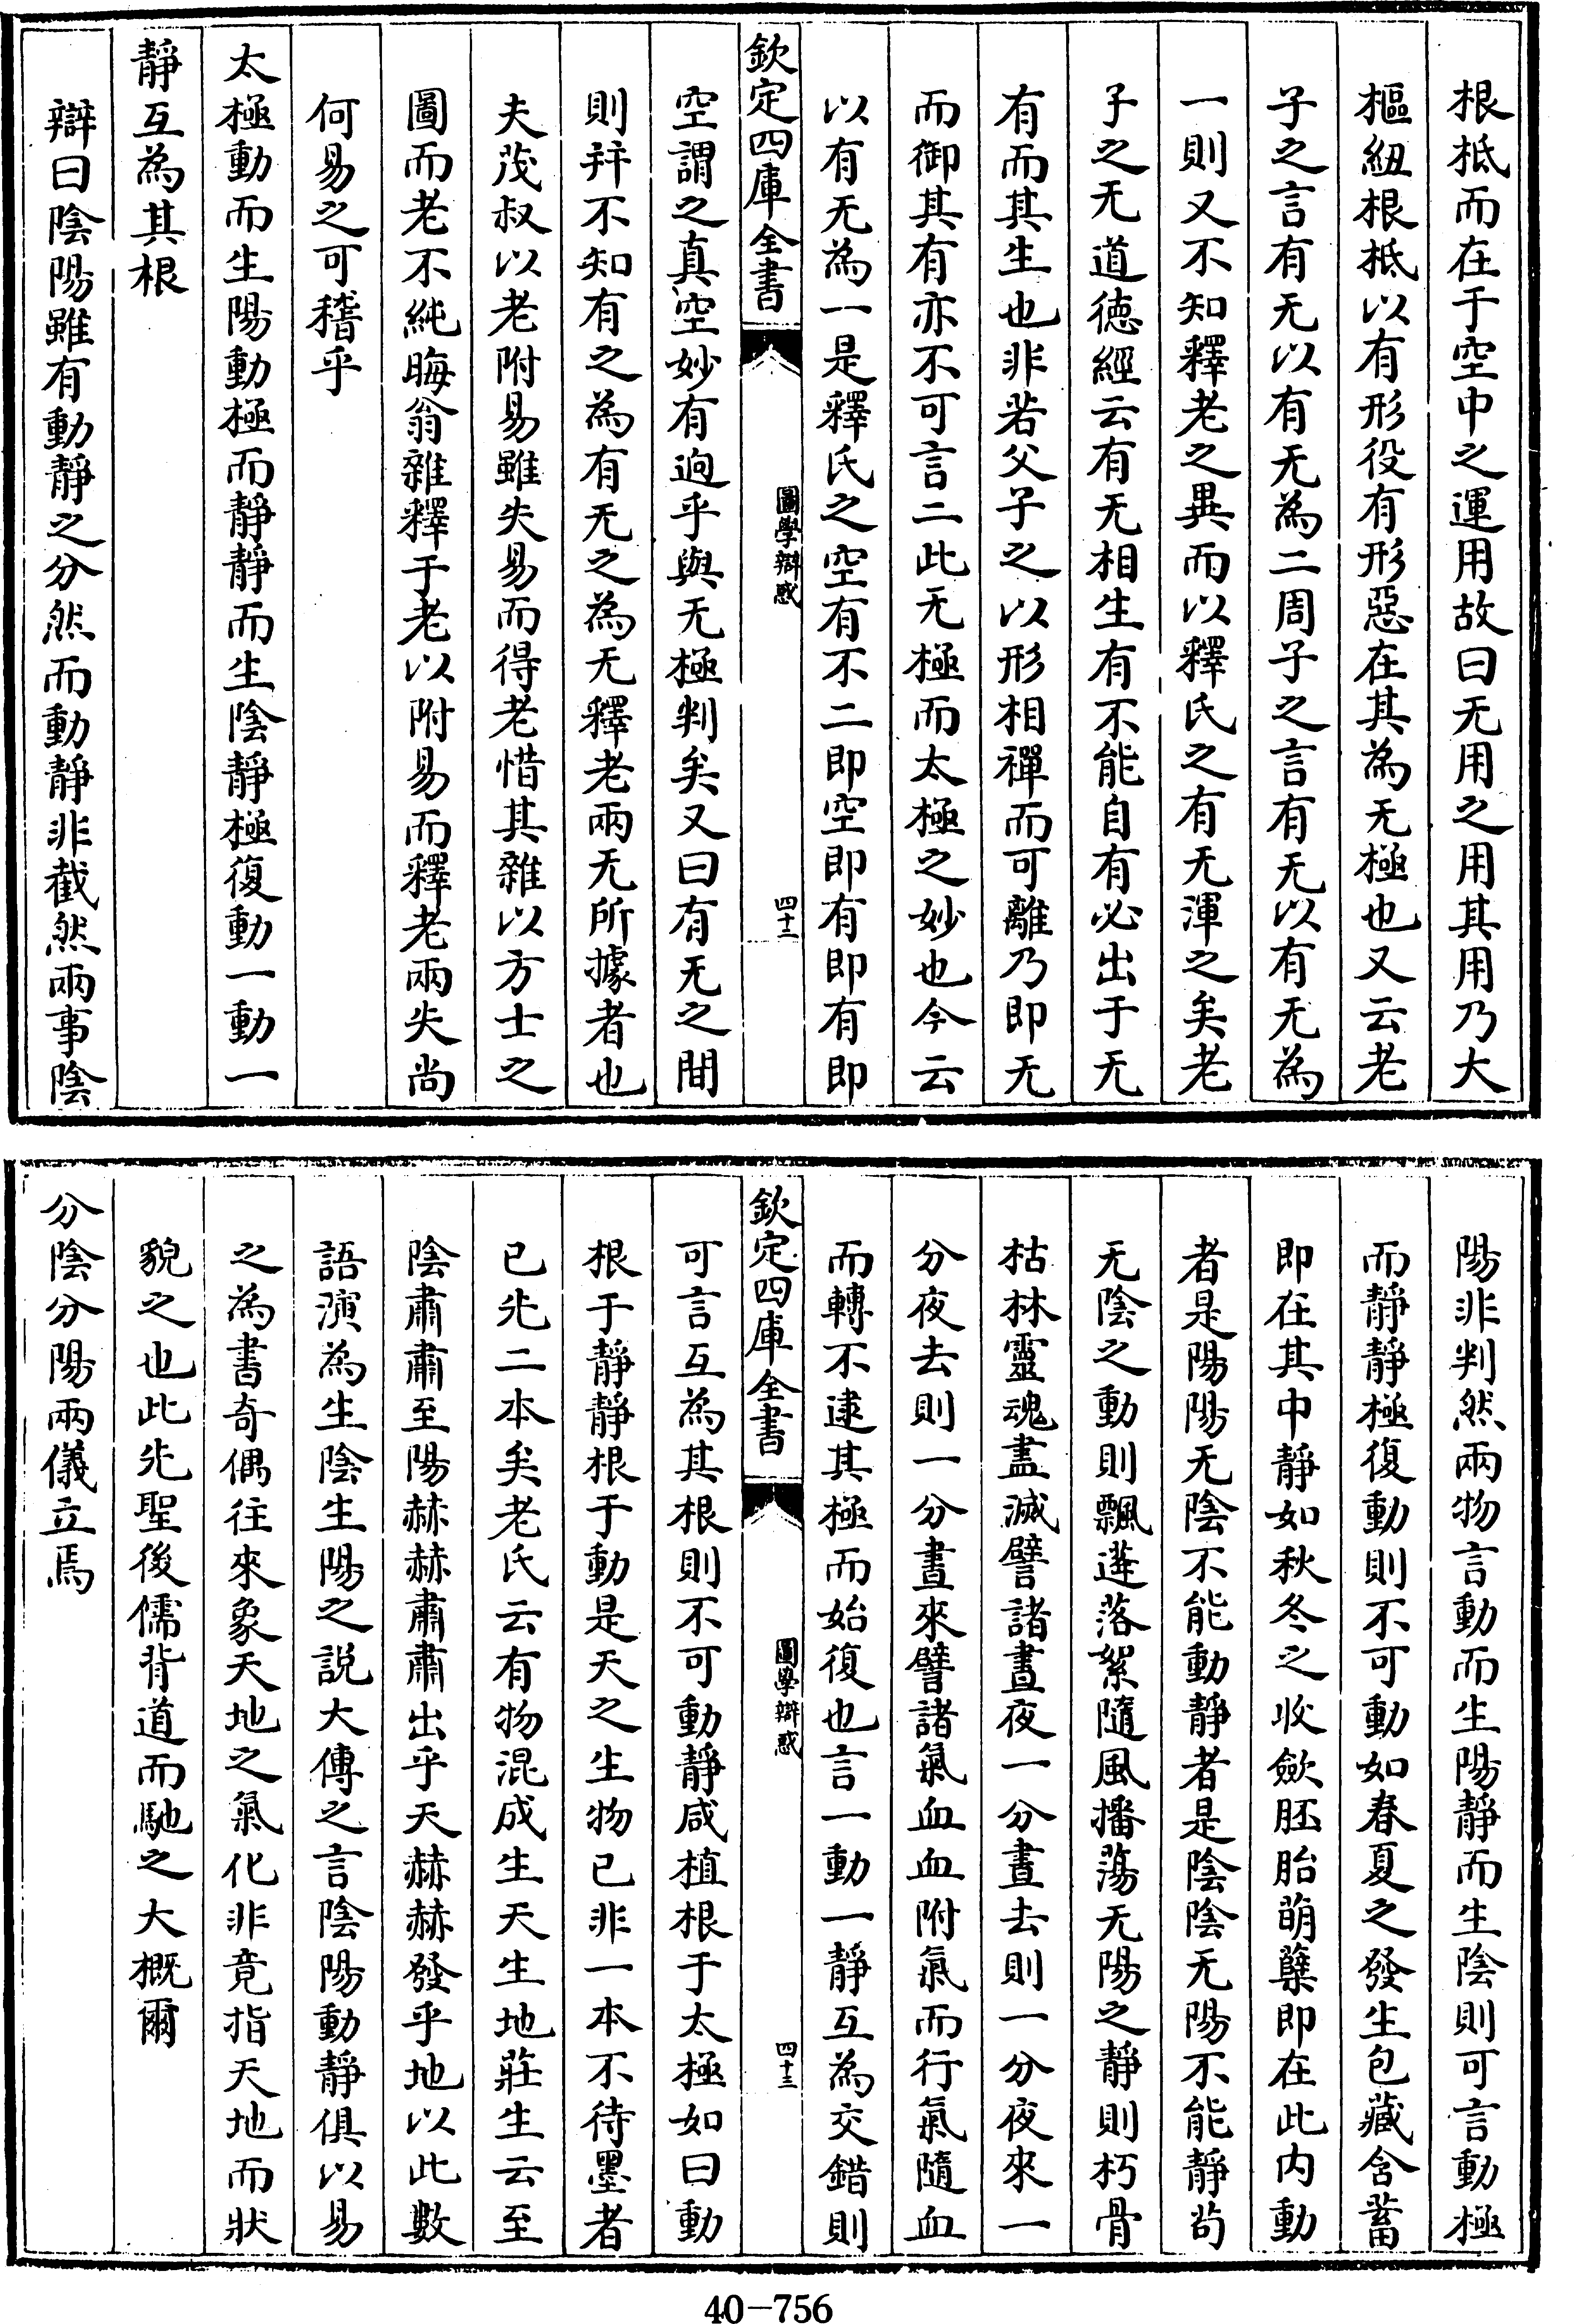 根柢而在于空中之運用故曰无用之用其用乃大
樞紐根柢以有形役有形惡在其為无極也又云老
子之言有无以有无為二周子之言有无以有无為
一則又不知釋老之異而以釋氏之有无渾之矣老
子之无道德經云有无相生有不能自有必出于无
有而其生也非若父子之以形相禪而可離乃即无
而御其有亦不可言二此无極而太極之妙也今云
以有无為一是釋氏之空有不二即空即有即有即
欽定四庫全書
圖學辯惑
四十二
空謂之真空妙有逈乎與无極判矣又曰有无之間
則并不知有之為有无之為无釋老兩无所據者也
夫茂叔以老附易雖失易而得老惜其雜以方士之
圖而老不純晦翁雜釋于老以附易而釋老兩失尚
何易之可稽乎
太極動而生陽動極而靜靜而生陰靜極復動一動一
靜互為其根
辯曰陰陽雖有動靜之分然而動靜非截然兩事陰
陽非判然兩物言動而生陽靜而生陰則可言動極
而靜靜極復動則不可動如春夏之發生包藏含蓄
即在其中靜如秋冬之收歛胚胎萌蘖即在此内動
者是陽陽无陰不能動靜者是陰陰无陽不能靜尚
无陰之動則飄遊落絮隨風播蕩无陽之靜則朽骨
枯林靈魂盡滅譬諸晝夜一分晝去則一分夜來一
分夜去則一分晝來譬諸氣血血附氣而行氣隨血
而轉不逮其極而始復也言一動一靜互為交錯則
欽定四庫全書
圖學辯惑
四十三
可言互為其根則不可動靜咸植根于太極如曰動
根于靜靜根于動是天之生物已非一本不待墨者
已先二本矣老氏云有物混成生天生地莊生云至
陰肅肅至陽赫赫肅肅出乎天赫赫發乎地以此數
語演為生陰生陽之說大傳之言陰陽動靜俱以易
之為書奇偶往來象天地之氣化非竟指天地而狀
貌之也此先聖後儒背道而馳之大概爾
分陰分陽兩儀立焉
40-756